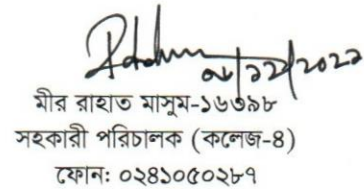 ০৮/১২/২০২২
মীর রাহাত মাসুম-১৬৩৯৮
সহকারী পরিচালক (কলেজ-৪)
ফোন: ০২৪১০৫০২৮৭